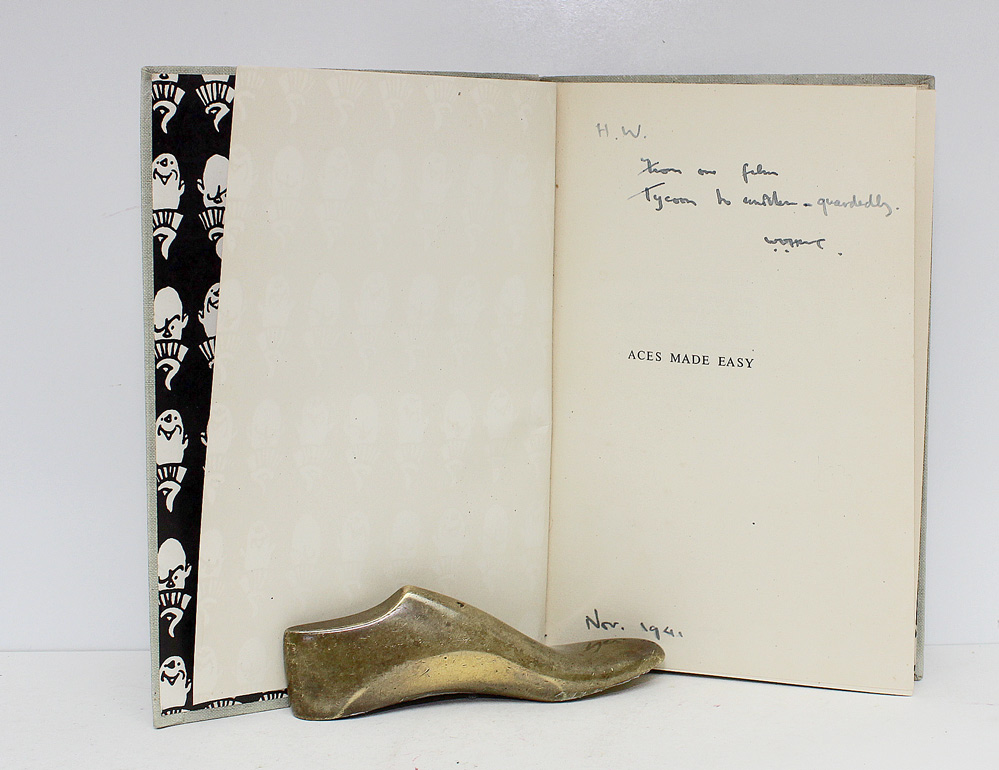 H.W.
From one film
Tycoon to another - guardedly.
ACES MADE EASY
Nov. 1941.